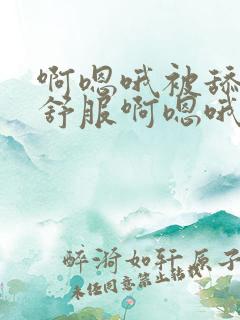 啊嗯哦被舔
舒服啊嗯哦
醉漪如轩原子
未经同意禁止转载